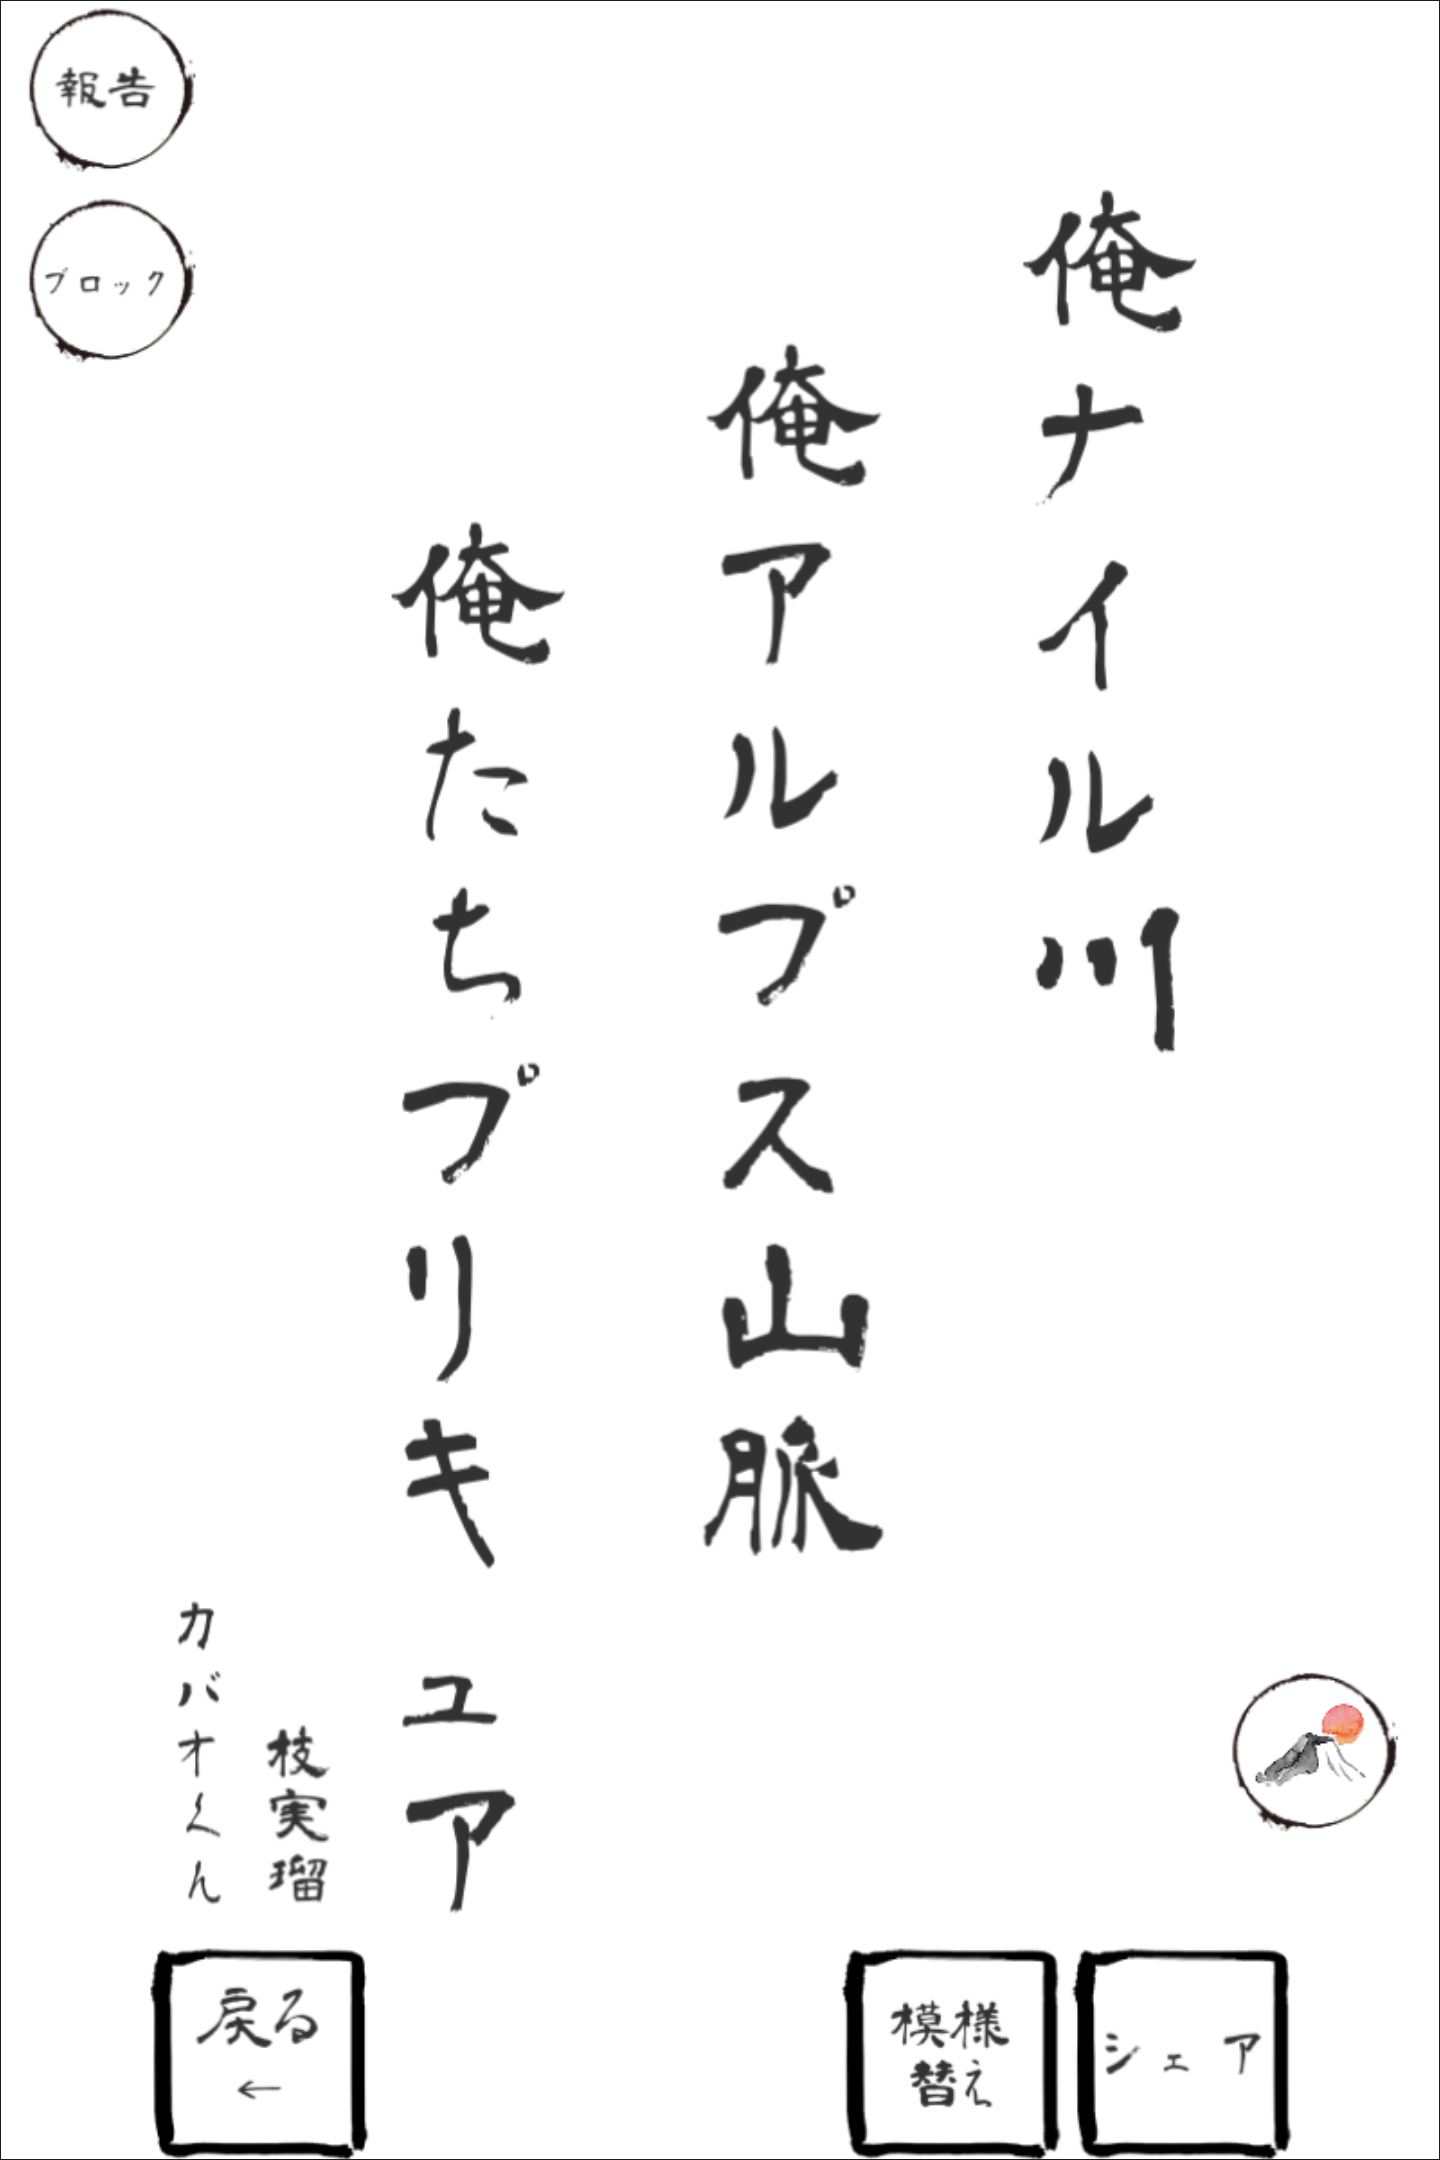 報告
ブロック
俺ナイル川
俺アルプス山脈
俺たちプリキュア
枝実瑠
カバオくん
戻る
←
模様
替え
シェア